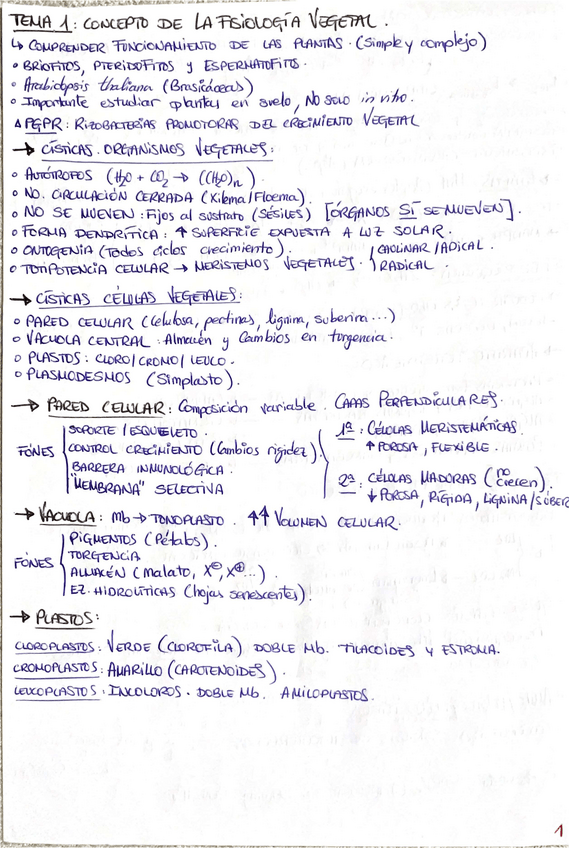 TEMA 1: CONCEPTO DE LA FISIOLOGÍA VEGETAL.
↳ COMPRENDER FUNCIONAMIENTO DE LAS PLANTAS. (Simple y complejo)
○ BRIOFITOS, PTERIDOFITOS y ESPERMATOFITOS.
○ Arabidopsis thaliana (Brasicáceas)
○ Importante estudiar plantas en suelo, NO SOLO in vitro.
△ PGPR: RIZOBACTERIAS PROMOTORAS DEL CRECIMIENTO VEGETAL
→ CÍSTICAS. ORGANISMOS VEGETALES:
○ AUTÓTROFOS (H₂O + CO₂ → (CH₂O)n)
○ NO. CIRCULACIÓN CERRADA (Xilema/Floema).
○ NO SE MUEVEN: Fijos al sustrato (Sésiles) [ÓRGANOS SÍ SE MUEVEN].
○ FORMA DENDRÍTICA: ↑ SUPERFICIE EXPUESTA A LUZ SOLAR.
○ ONTOGENIA (Todos ciclos crecimiento).
○ TOTIPOTENCIA CELULAR → MERISTEMOS VEGETALES. { CAULINAR / APICAL.
RADICAL.
→ CÍSTICAS CÉLULAS VEGETALES:
○ PARED CELULAR (Celulosa, pectinas, lignina, suberina...)
○ VACUOLA CENTRAL: Almacén y Cambios en turgencia.
○ PLASTOS: CLORO/CROMO/LEUCO.
○ PLASMODESMOS (Simplasto).
→ PARED CELULAR: Composición variable. CAPAS PERPENDICULARES.
FONES { SOPORTE / ESQUELETO.
CONTROL CRECIMIENTO (Cambios rigidez).
BARRERA INMUNOLÓGICA.
"MEMBRANA" SELECTIVA
{ 1ª: CÉLULAS MERISTEMÁTICAS.
↑ POROSA, FLEXIBLE.
2ª: CÉLULAS MADURAS (no crecen).
↓ POROSA, RÍGIDA, LIGNINA/SÚBER
→ VACUOLA: Mb → TONOPLASTO. ↑↑ VOLUMEN CELULAR.
FONES { PIGMENTOS (Pétalos).
TORGENCIA
ALMACÉN (Malato, X⊖, X⊕...).
EZ. HIDROLÍTICAS (hojas senescentes).
→ PLASTOS:
CLOROPLASTOS: VERDE (CLOROFILA) DOBLE Mb. TILACOIDES Y ESTROMA.
CROMOPLASTOS: AMARILLO (CAROTENOIDES).
LEUCOPLASTOS: INCOLOROS. DOBLE Mb. AMILOPLASTOS.
1